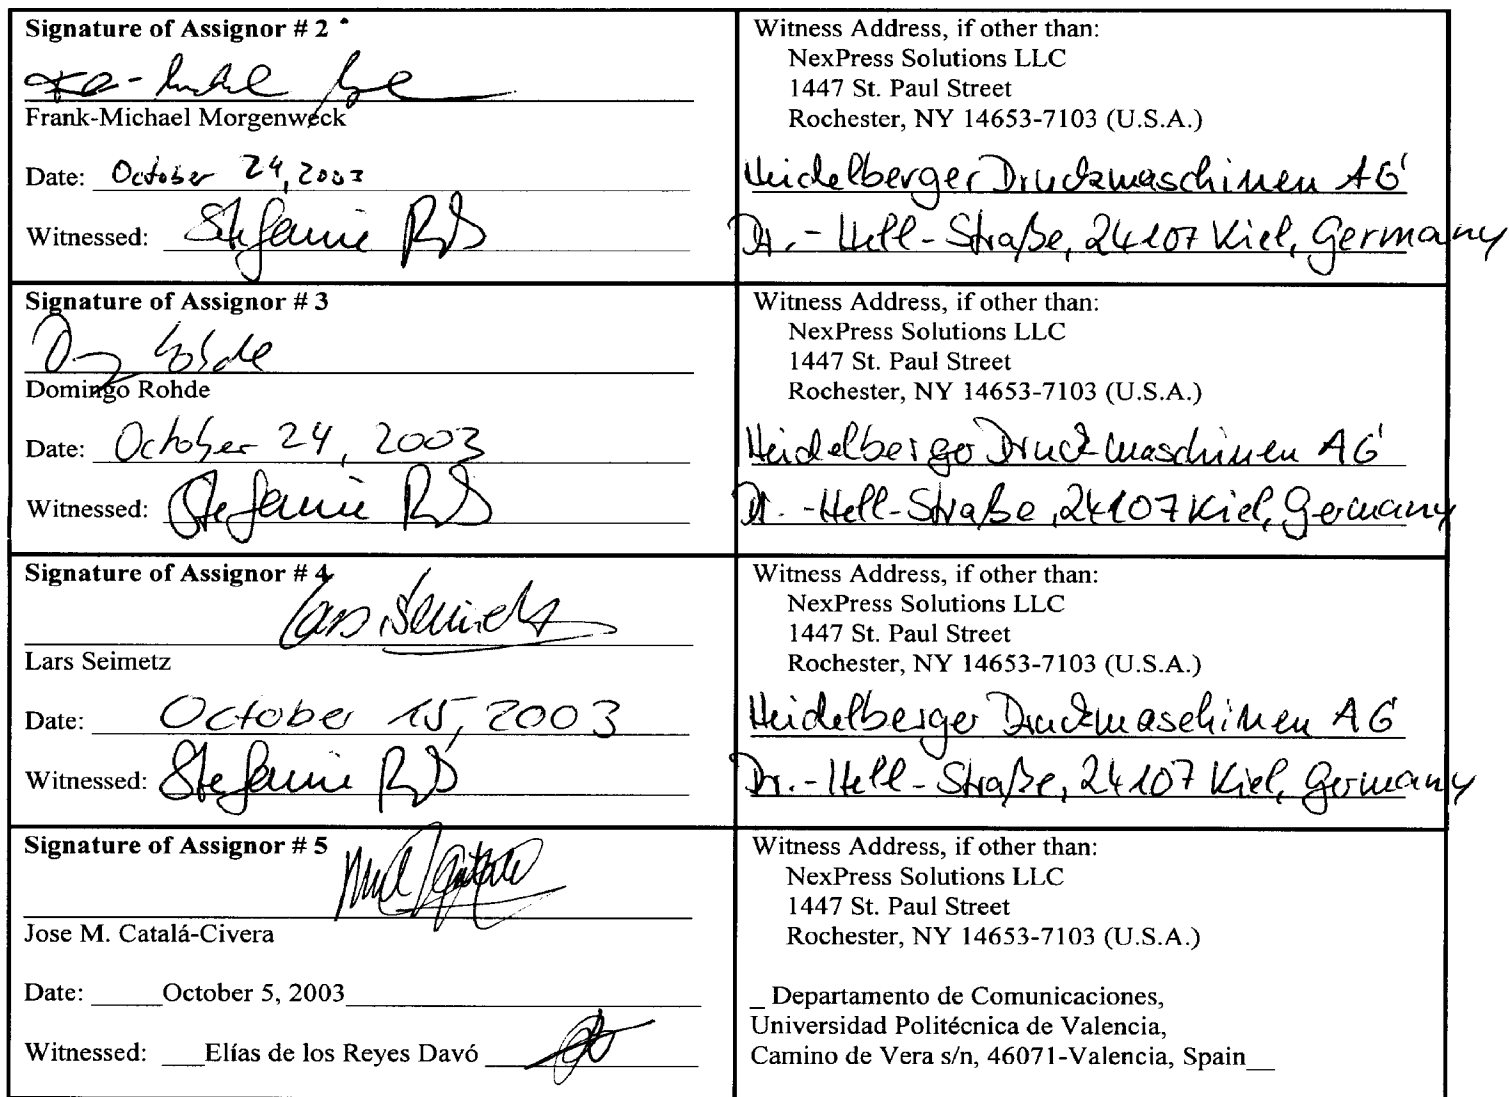 Signature of Assignor # 2
Frank-Michael Morgenweck
Date: October 24, 2003
Witnessed: Stefanie
Witness Address, if other than:
NexPress Solutions LLC
1447 St. Paul Street
Rochester, NY 14653-7103 (U.S.A.)
Heidelberger Druckmaschinen AG
Dr.-Hell-Straße, 24107 Kiel, Germany
Signature of Assignor # 3
Domingo Rohde
Date: October 24, 2003
Witnessed: Stefanie
Witness Address, if other than:
NexPress Solutions LLC
1447 St. Paul Street
Rochester, NY 14653-7103 (U.S.A.)
Heidelberger Druckmaschinen AG
Dr.-Hell-Straße, 24107 Kiel, Germany
Signature of Assignor # 4
Lars Seimetz
Lars Seimetz
Date: October 15, 2003
Witnessed: Stefanie
Witness Address, if other than:
NexPress Solutions LLC
1447 St. Paul Street
Rochester, NY 14653-7103 (U.S.A.)
Heidelberger Druckmaschinen AG
Dr.-Hell-Straße, 24107 Kiel, Germany
Signature of Assignor # 5
Jose M. Catalá-Civera
Date: October 5, 2003
Witnessed: Elías de los Reyes Davó
Witness Address, if other than:
NexPress Solutions LLC
1447 St. Paul Street
Rochester, NY 14653-7103 (U.S.A.)
_ Departamento de Comunicaciones,
Universidad Politécnica de Valencia,
Camino de Vera s/n, 46071-Valencia, Spain__